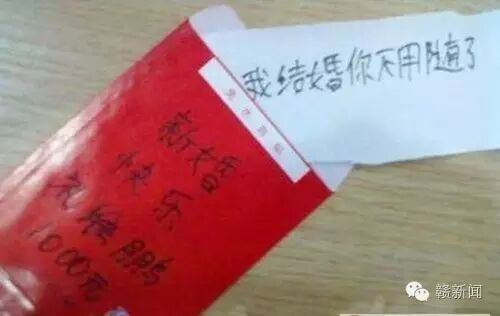 我结婚你不用随了
新婚
快乐
1000元
赣新闻